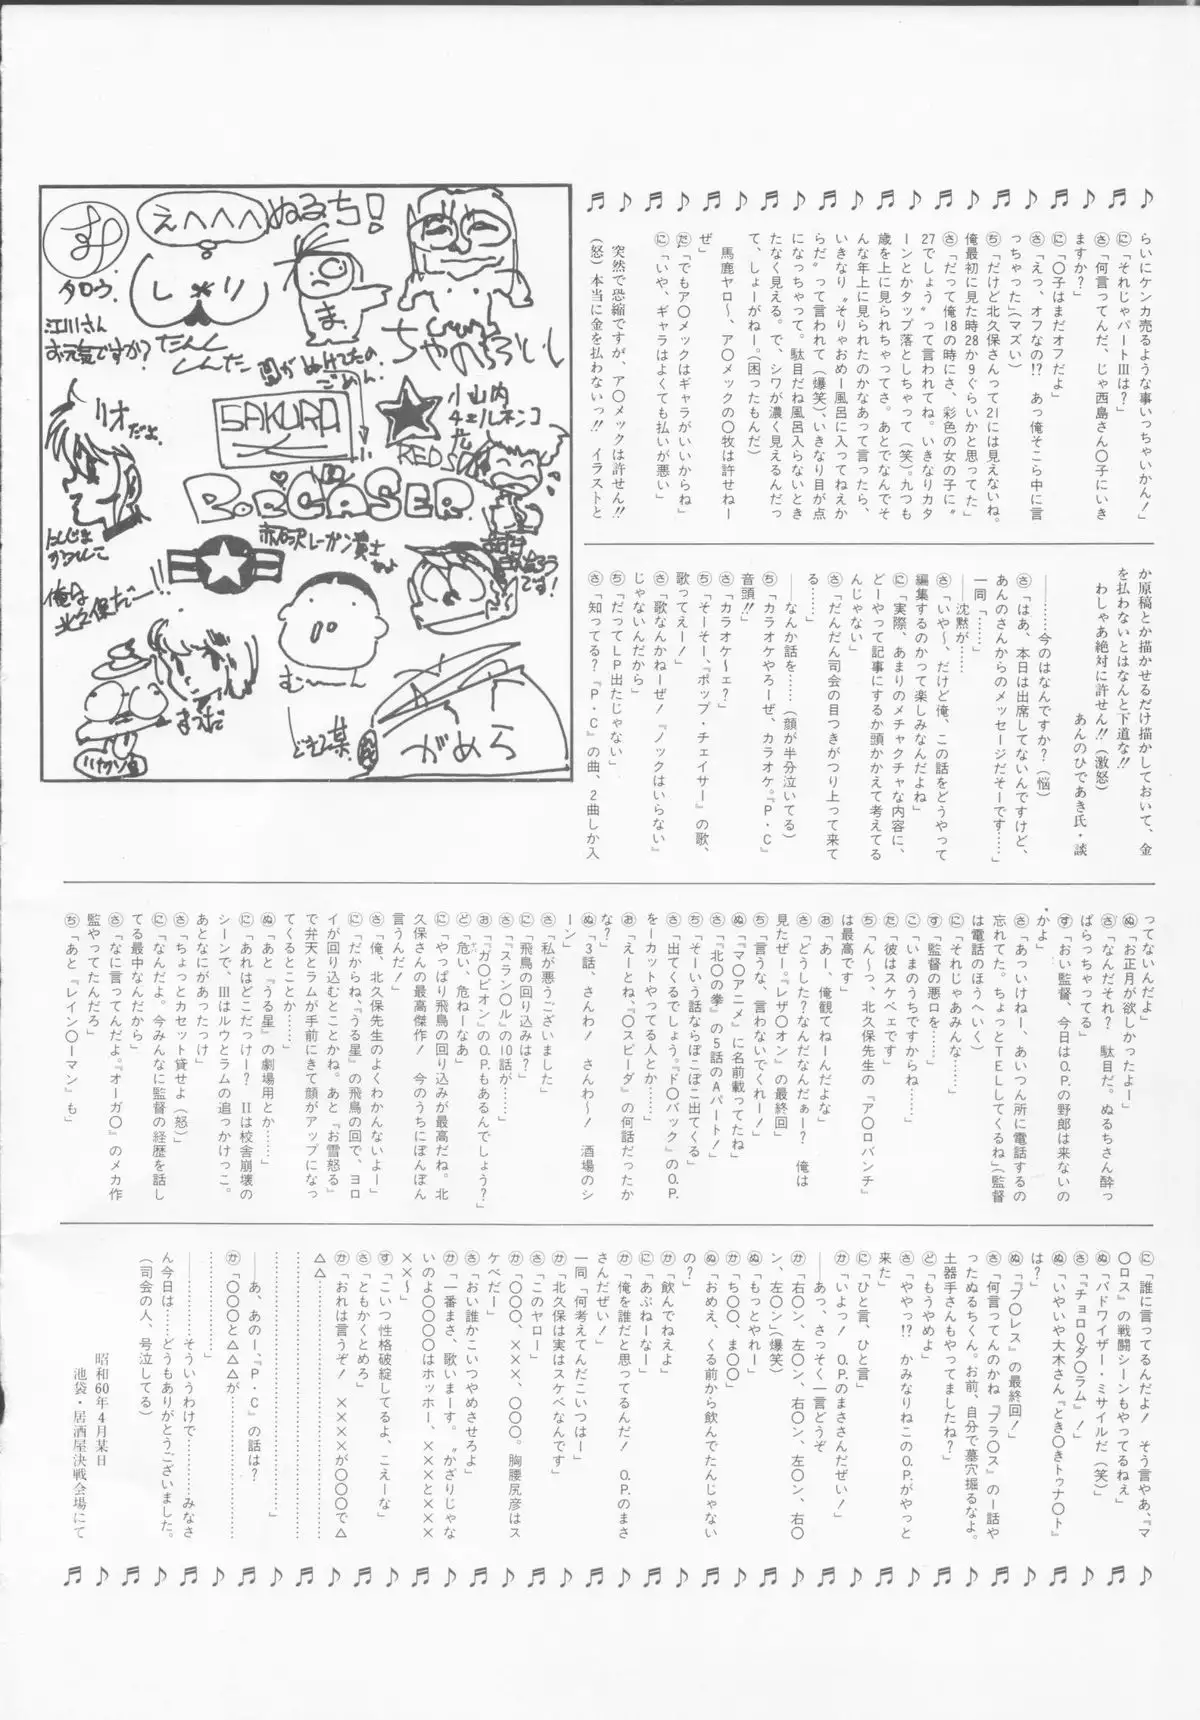 らいにケンカ売るような事いっちゃいかん!」
に「それじゃパートⅢは?」
さ「何言ってんだ、じゃ西島さん〇子にいき
ますか?」
に「〇子はまだオフだよ」
さ「えっ、オフなの!? あっ俺そこら中に言
っちゃった」(マズい)
ち「だけど北久保さんって21には見えないね。
俺最初に見た時28か9ぐらいかと思ってた」
さ「だって俺18の時にさ、彩色の女の子に〝
27でしょう〟って言われてね。いきなりカタ
ーンとかタップ落としちゃって(笑)。九つも
歳を上に見られちゃってさ。あとでなんでそ
んな年上に見られたのかなあって言ったら、
いきなり〝そりゃおめー風呂に入ってねえか
らだ〟って言われて(爆笑)、いきなり目が点
になっちゃって。駄目だね風呂入らないとき
たなく見える。で、シワが濃く見えるんだっ
て、しょーがねー。(困ったもんだ)
馬鹿ヤロ〜、ア〇メックの〇牧は許せねー
ぜ」
た「でもア〇メックはギャラがいいからね」
に「いや、ギャラはよくても払いが悪い」
突然で恐縮ですが、ア〇メックは許せん!!
(怒)本当に金を払わないっ!! イラストと
か原稿とか描かせるだけ描かしておいて、金
を払わないとはなんと下道な!!
わしゃあ絶対に許せん!!(激怒)
あんのひであき氏・談
――………今のはなんですか?(悩)
さ「はあ、本日は出席してないんですけど、
あんのさんからのメッセージだそーです……」
一同「………」
――沈黙が……
さ「いや〜、だけど俺、この話をどうやって
編集するのかって楽しみなんだよね」
に「実際、あまりのメチャクチャな内容に、
どーやって記事にするか頭かかえて考えてる
んじゃない」
さ「だんだん司会の目つきがつり上って来て
る……」
――なんか話を……(顔が半分泣いてる)
ち「カラオケやろーぜ、カラオケ。『P・C』
音頭!!」
さ「カラオケ〜ェ?」
ち「そーそー、『ポップ・チェイサー』の歌、
歌ってえー!」
さ「歌なんかねーぜ!『ノックはいらない』
じゃないんだから」
ち「だってLP出たじゃない」
さ「知ってる?『P・C』の曲、2曲しか入
ってないんだよ」
ぬ「お正月が欲しかったよー」
さ「なんだそれ? 駄目だ。ぬるちさん酔っ
ぱらっちゃってる」
す「おい監督、今日はO.P.の野郎は来ないの
かよ」
さ「あっいけねー、あいつん所に電話するの
忘れてた。ちょっとTELしてくるね」(監督
は電話のほうへいく)
に「それじゃあみんな……」
す「監督の悪口を……」
こ「いまのうちですからね……」
た「彼はスケベです」
ち「ん〜っ、北久保先生の『ア〇ロバンチ』
は最高です」
お「あー、俺観てねーんだよな」
さ「どうした? なんだなんだぁー? 俺は
見たぜー。『レザ〇オン』の最終回」
ち「言うな、言わないでくれー!」
ぬ「『マ〇アニメ』に名前載ってたね」
さ「『北〇の拳』の5話のAパート!」
ち「そーいう話ならぼこぼこ出てくる」
さ「出てくるでしょう。『ド〇バック』のO.P.
をーカットやってる人とか……」
お「えーとね、『〇スピーダ』の何話だったか
な?」
ぬ「3話、さんわ! さんわ〜! 酒場のシ
ーン」
さ「私が悪うございました」
に「飛鳥の回り込みは?」
さ「『スラン〇ル』の10話が……」
お「『ガ〇ビオン』のO.P.もあるんでしょう?」
ど「危い、危ねーなあ」
に「やっぱり飛鳥の回り込みが最高だね。北
久保さんの最高傑作! 今のうちにぼんぼん
言うんだ!」
さ「俺、北久保先生のよくわかんないよー」
に「だからね、『うる星』の飛鳥の回で、ヨロ
イが回り込むとことかね。あと『お雪怒る』
で弁天とラムが手前にきて顔がアップになっ
てくるとことか……」
ぬ「あと『うる星』の劇場用とか……」
に「あれはどこだっけー? Ⅱは校舎崩壊の
シーンで、Ⅲはルウとラムの追っかけっこ。
あとなにがあったっけ」
さ「ちょっとカセット貸せよ(怒)」
に「なんだよ。今みんなに監督の経歴を話し
てる最中なんだから」
さ「なに言ってんだよ。『オーガ〇』のメカ作
監やってたんだろ」
ち「あと『レイン〇ーマン』も」
に「誰に言ってるんだよ! そう言やあ、『マ
〇ロス』の戦闘シーンもやってるねぇ」
ぬ「バドワイザー・ミサイルだ(笑)」
さ「『チョロQダ〇ラム』!」
ぬ「いやいや大木さん『とき〇きトゥナ〇ト』
は?」
ぬ「『プ〇レス』の最終回!」
さ「何言ってんのかね『プラ〇ス』の一話や
ったぬるちくん。お前、自分で墓穴掘るなよ。
土器手さんもやってましたね?」
ど「もうやめよ」
さ「ややっ!? かみなりねこのO.P.がやっと
来た」
に「ひと言、ひと言」
か「いよっ! O.P.のまささんだぜい!」
――あっ、さっそく一言どうぞ
か「右〇ン、左〇ン、右〇ン、左〇ン、右〇
ン、左〇ン」(爆笑)
ぬ「もっとやれー」
か「ち〇〇、ま〇〇」
ぬ「おめえ、くる前から飲んでたんじゃない
の?」
か「飲んでねえよ」
に「あぶねーなー」
か「俺を誰だと思ってるんだ! O.P.のまさ
さんだぜい!」
一同「何考えてんだこいつはー」
か「北久保は実はスケベなんです」
さ「このヤロー」
か「〇〇〇、×××、〇〇〇。胸腰尻彦はス
ケベだー」
さ「おい誰かこいつやめさせろよ」
か「一番まさ、歌いまーす。〝かざりじゃな
いのよ〇〇〇〇はホッホー、××××と×××
××〜」
す「こいつ性格破綻してるよ、こえーな」
さ「ともかくとめろ」
か「おれは言うぞ! ××××が〇〇〇で△
△△……………………
………………………………」
――あ、あのー、『P・C』の話は?
か「〇〇〇と△△△が…………
………………」
――………そういうわけで………みなさ
ん今日は……どうもありがとうございました。
(司会の人、号泣してる)
昭和60年4月某日
池袋・居酒屋決戦会場にて
す
タロウ.
えへへへ
ぬるち!
江川さん
お元気ですか?
たんく
しんた
ま
SAKURA
小山内
チェルネンコ
RED
リオだよ.
P.CHASER
赤沢レーガン貴士
俺は
北久保だー!!
まつだ
む〜〜ん
どきて某
がめら